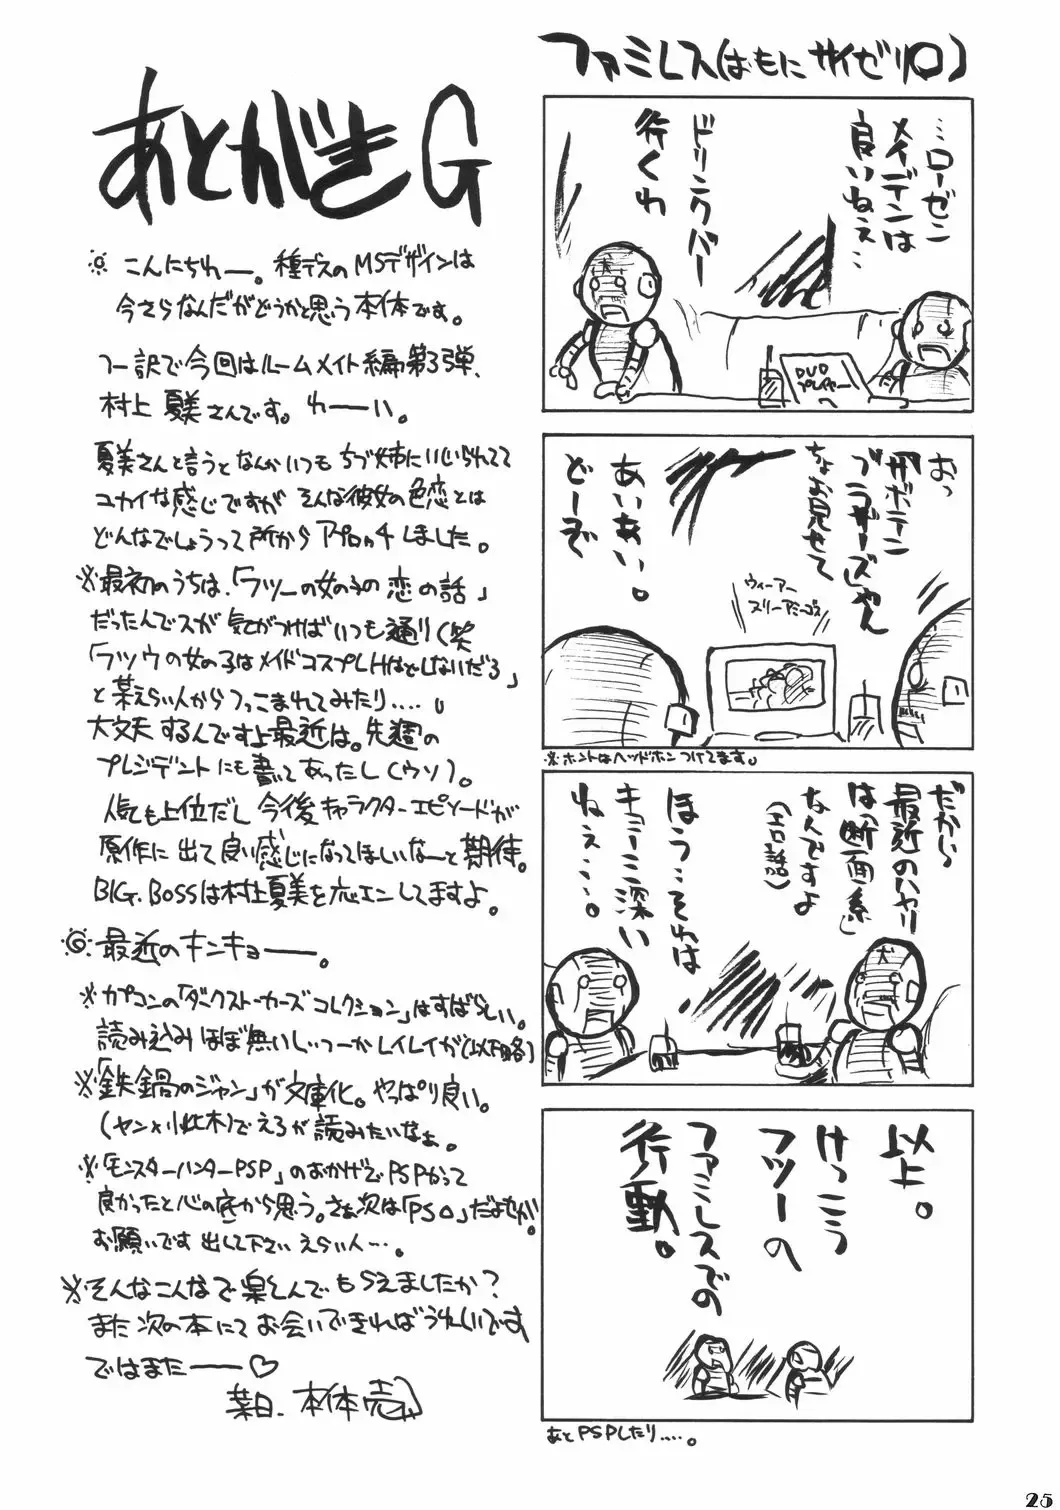 あとがきG
こんにちわー。種デスのMSデザインは
今さらなんだがどうかと思う本体です。
つー訳で今回はルームメイト編第3弾、
村上夏美さんです。わーい。
夏美さんと言うとなんかいつもちづ姉にいじられてて
ユカイな感じですが そんな彼女の色恋とは
どんなでしょうって所からアプローチしました。
※最初のうちは、「フツーの女の子の恋の話」
だったんでスが気がつけばいつも通り(笑
「フツウの女の子はメイドコスプレHはしないだろ」
と某えらい人からつっこまれてみたり……。
大丈夫するんですよ最近は。先週の
プレジデントにも書いてあったし(ウソ)。
人気も上位だし今後キャラクターエピソードが
原作に出て良い感じになってほしいなーと期待。
BIG.BOSSは村上夏美を応エンしてますよ。
最近のキンキョー。
※カプコンの「ダークストーカーズコレクション」はすばらしい。
読み込みほぼ無いし、つーかレイレイが(以下略)
※「鉄鍋のジャン」が文庫化。やっぱり良い。
(ヤン×小此木)でえろが読みたいなぁ。
※「モンスターハンターPSP」のおかげでPSPかって
良かったと心の底から思う。さぁ次は「PS○」だよセガ。
お願いです出して下さいえらい人…。
※そんなこんなで楽しんでもらえましたか?
また次の本にてお会いできればうれしいです
ではまたー♡
某日、本体売
ファミレス(はもにサイゼリ○)
…ローゼン
メイデンは
良いねぇ…
ドリンクバー
行くわ
DVD
プレイヤー
おっ
『ザボテン
ブラザーズ』やん
ちょお見せて
あいあい。
どーぞ
ウィーアー
スリーアミーゴス
※ホントはヘッドホンつけてます。
だから
最近のハヤリ
は「断面系」
なんですよ
(エロ話)
ほう…それは
キョーミ深い
ねぇ……。
以上。
けっこう
フツーの
ファミレスでの
行動。
あとPSPしたり……。
25